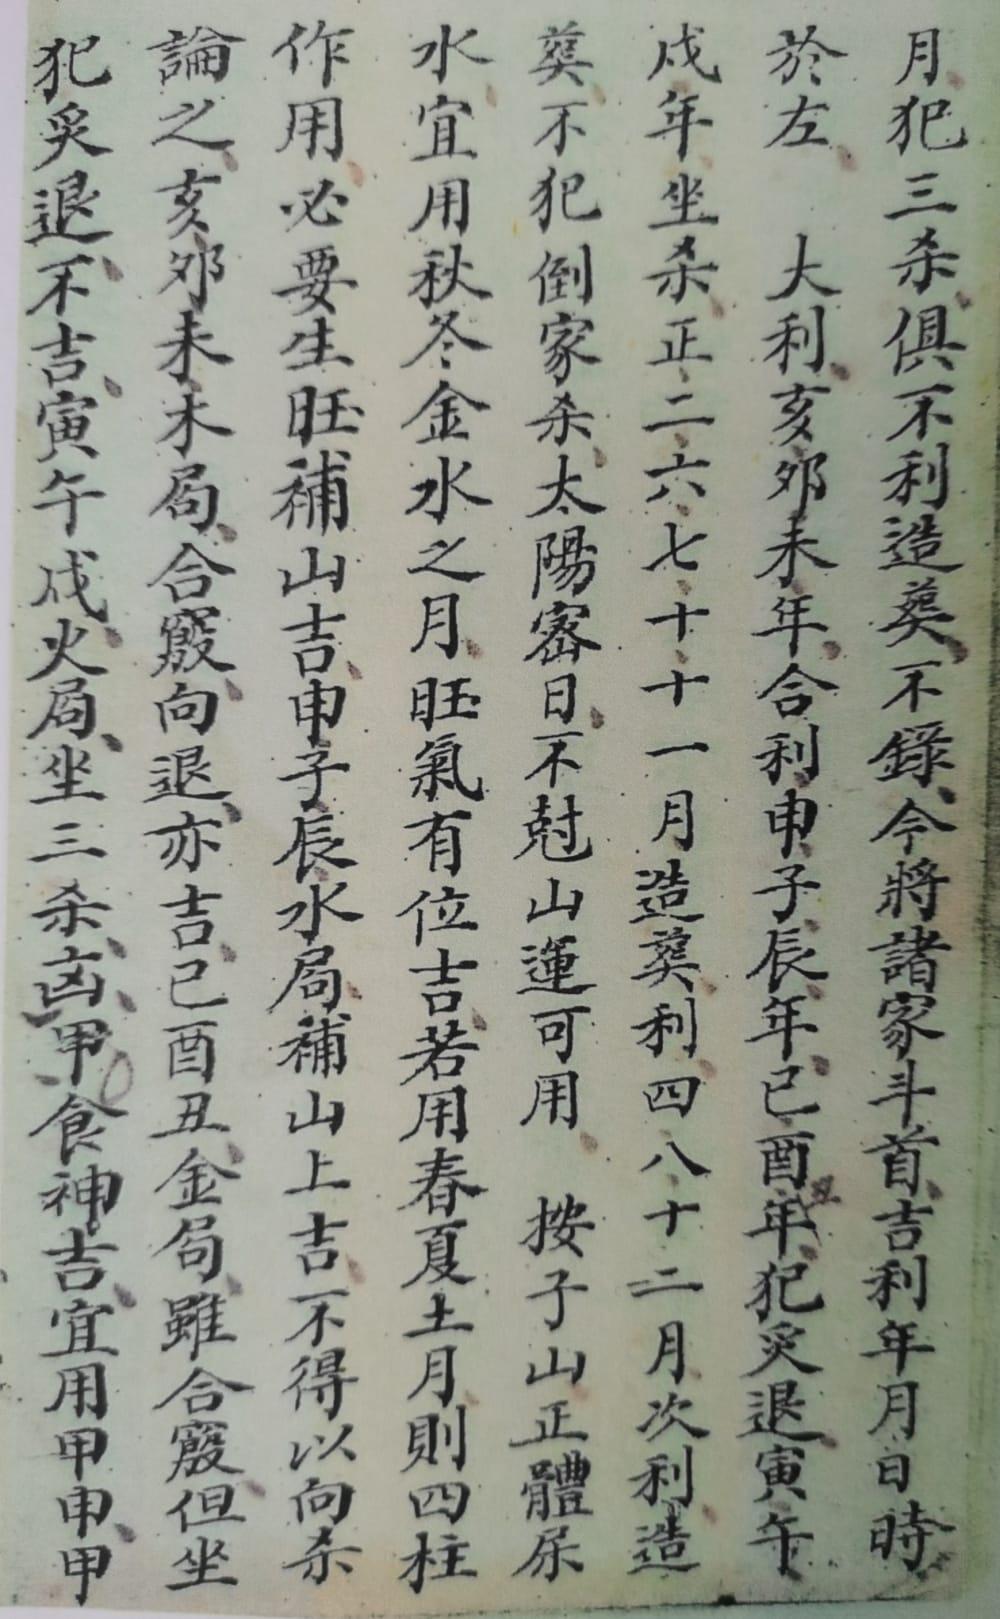 月犯三杀俱不利造葵不錄今將諸家斗首吉利年月日時
於左　大利亥夘未年合利申子辰年已酉丑年犯炙退寅午
戍年坐杀正二六七十十一月造葵利四八十二月次利造
葵不犯倒家杀太陽宻日不尅山運可用　按子山正體屬
水宜用秋冬金水之月旺氣有位吉若用春夏土月則四柱
作用必要生旺補山吉申子辰水局補山上吉不得以向杀
論之亥夘未木局合廢向退亦吉已酉丑金局雖合廢但坐
犯炙退不吉寅午戍火局坐三杀凶甲食神吉宜用甲申甲